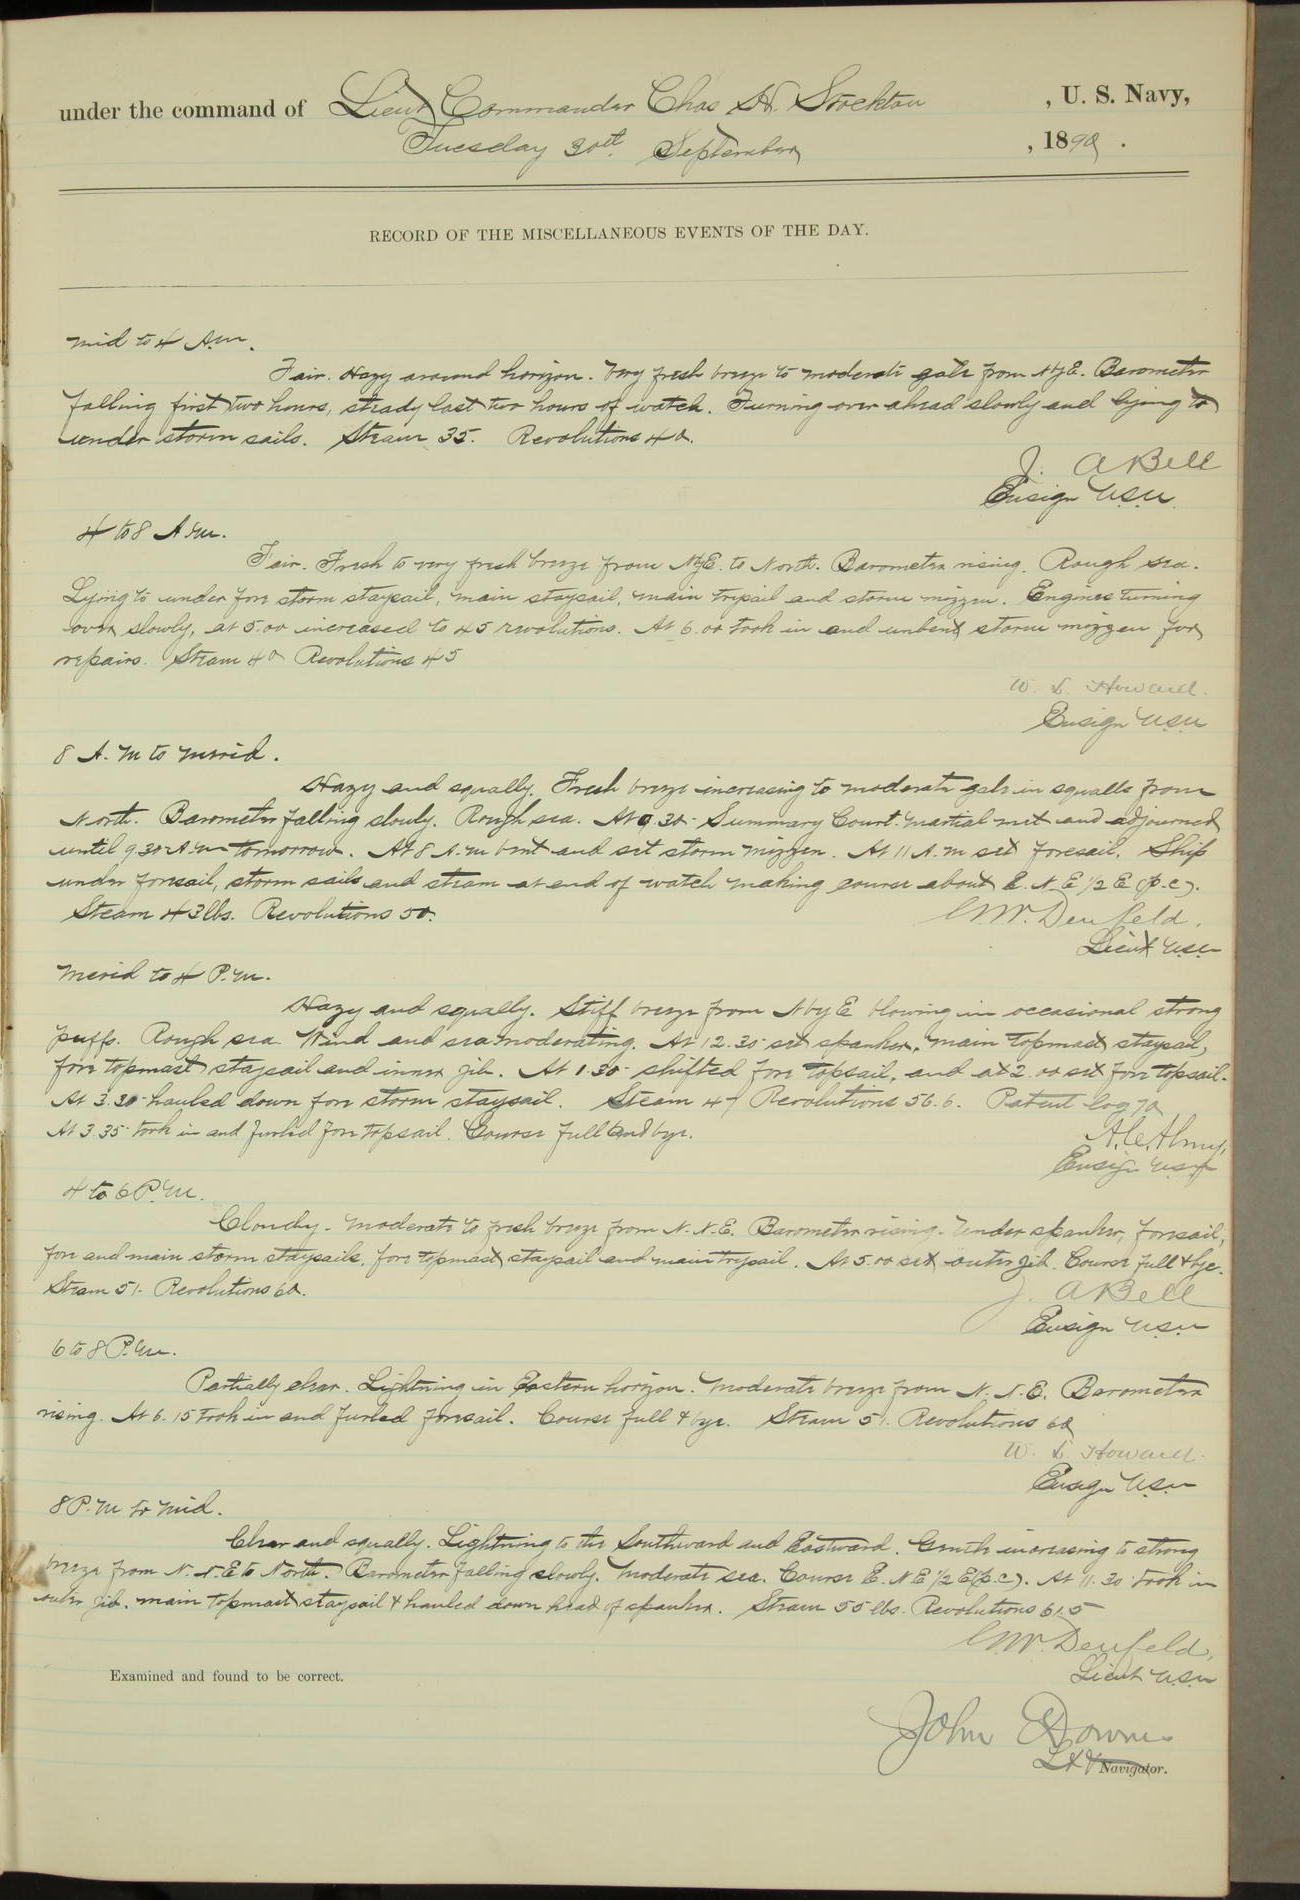 under the command of Lieut Commander Chas H. Stockton, U. S. Navy,
Tuesday 30th September, 1890.
RECORD OF THE MISCELLANEOUS EVENTS OF THE DAY.
Mid to 4 A.m.
Fair. Hazy around horizon. Very fresh breeze to moderate gale from NyE. Barometer
falling first two hours, steady last two hours of watch. Turning over ahead slowly and lying to
under storm sails. Steam 35. Revolutions 40.
J. A Bell
Ensign USN.
4 to 8 A.m.
Fair. Fresh to very fresh breeze from NyE. to North. Barometer rising. Rough sea.
Lying to under fore storm staysail, main staysail, main trysail and storm mizzen. Engines turning
over slowly, at 5.00 increased to 45 revolutions. At 6.00 took in and unbent storm mizzen for
repairs. Steam 40 Revolutions 45
W. L. Howard.
Ensign USN
8 A.M to Merid.
Hazy and squally. Fresh breeze increasing to moderate gale in squalls from
North. Barometer falling slowly. Rough sea. At 9.30 Summary Court-martial met and adjourned
until 9 30 A.m tomorrow. At 8 A.m bent and set storm mizzen. At 11 A.m set foresail. Ship
under foresail, storm sails and steam at end of watch making course about E. N. E 1/2 E (p.c).
Steam 43 lbs. Revolutions 50.
C.M. Denfeld.
Lieut USN
Merid to 4 P.m.
Hazy and squally. Stiff breeze from NbyE blowing in occasional strong
puffs. Rough sea. Wind and sea moderating. At 12.30 set spanker, main topmast staysail,
fore topmast staysail and inner jib. At 1.30 shifted fore topsail, and at 2.00 set fore topsail.
At 3.30 hauled down fore storm staysail. Steam 47 Revolutions 56.6. Patent log 70
At 3.35 took in and furled fore topsail. Course full and bye.
A.C. Almy,
Ensign USN
4 to 6 P.M.
Cloudy. Moderate to fresh breeze from N. N. E. Barometer rising. Under spanker, foresail,
fore and main storm staysails, fore topmast staysail and main trysail. At 5.00 set outer jib. Course full & bye.
Steam 51. Revolutions 60.
J. A Bell
Ensign USN
6 to 8 P.m.
Partially clear. Lightning in Eastern horizon. Moderate breeze from N. N. E. Barometer
rising. At 6.15 took in and furled foresail. Course full & bye. Steam 51. Revolutions 60
W. L. Howard.
Ensign USN
8 P.M to Mid.
Clear and squally. Lightning to the Southward and Eastward. Gentle increasing to strong
breeze from N. N. E to North. Barometer falling slowly. Moderate sea. Course E. N E 1/2 E (p.c). At 11.30 took in
outer jib. main topmast staysail & hauled down head of spanker. Steam 55 lbs. Revolutions 61.5
C.M. Denfeld,
Lieut USN
Examined and found to be correct.
John Downes
Navigator.